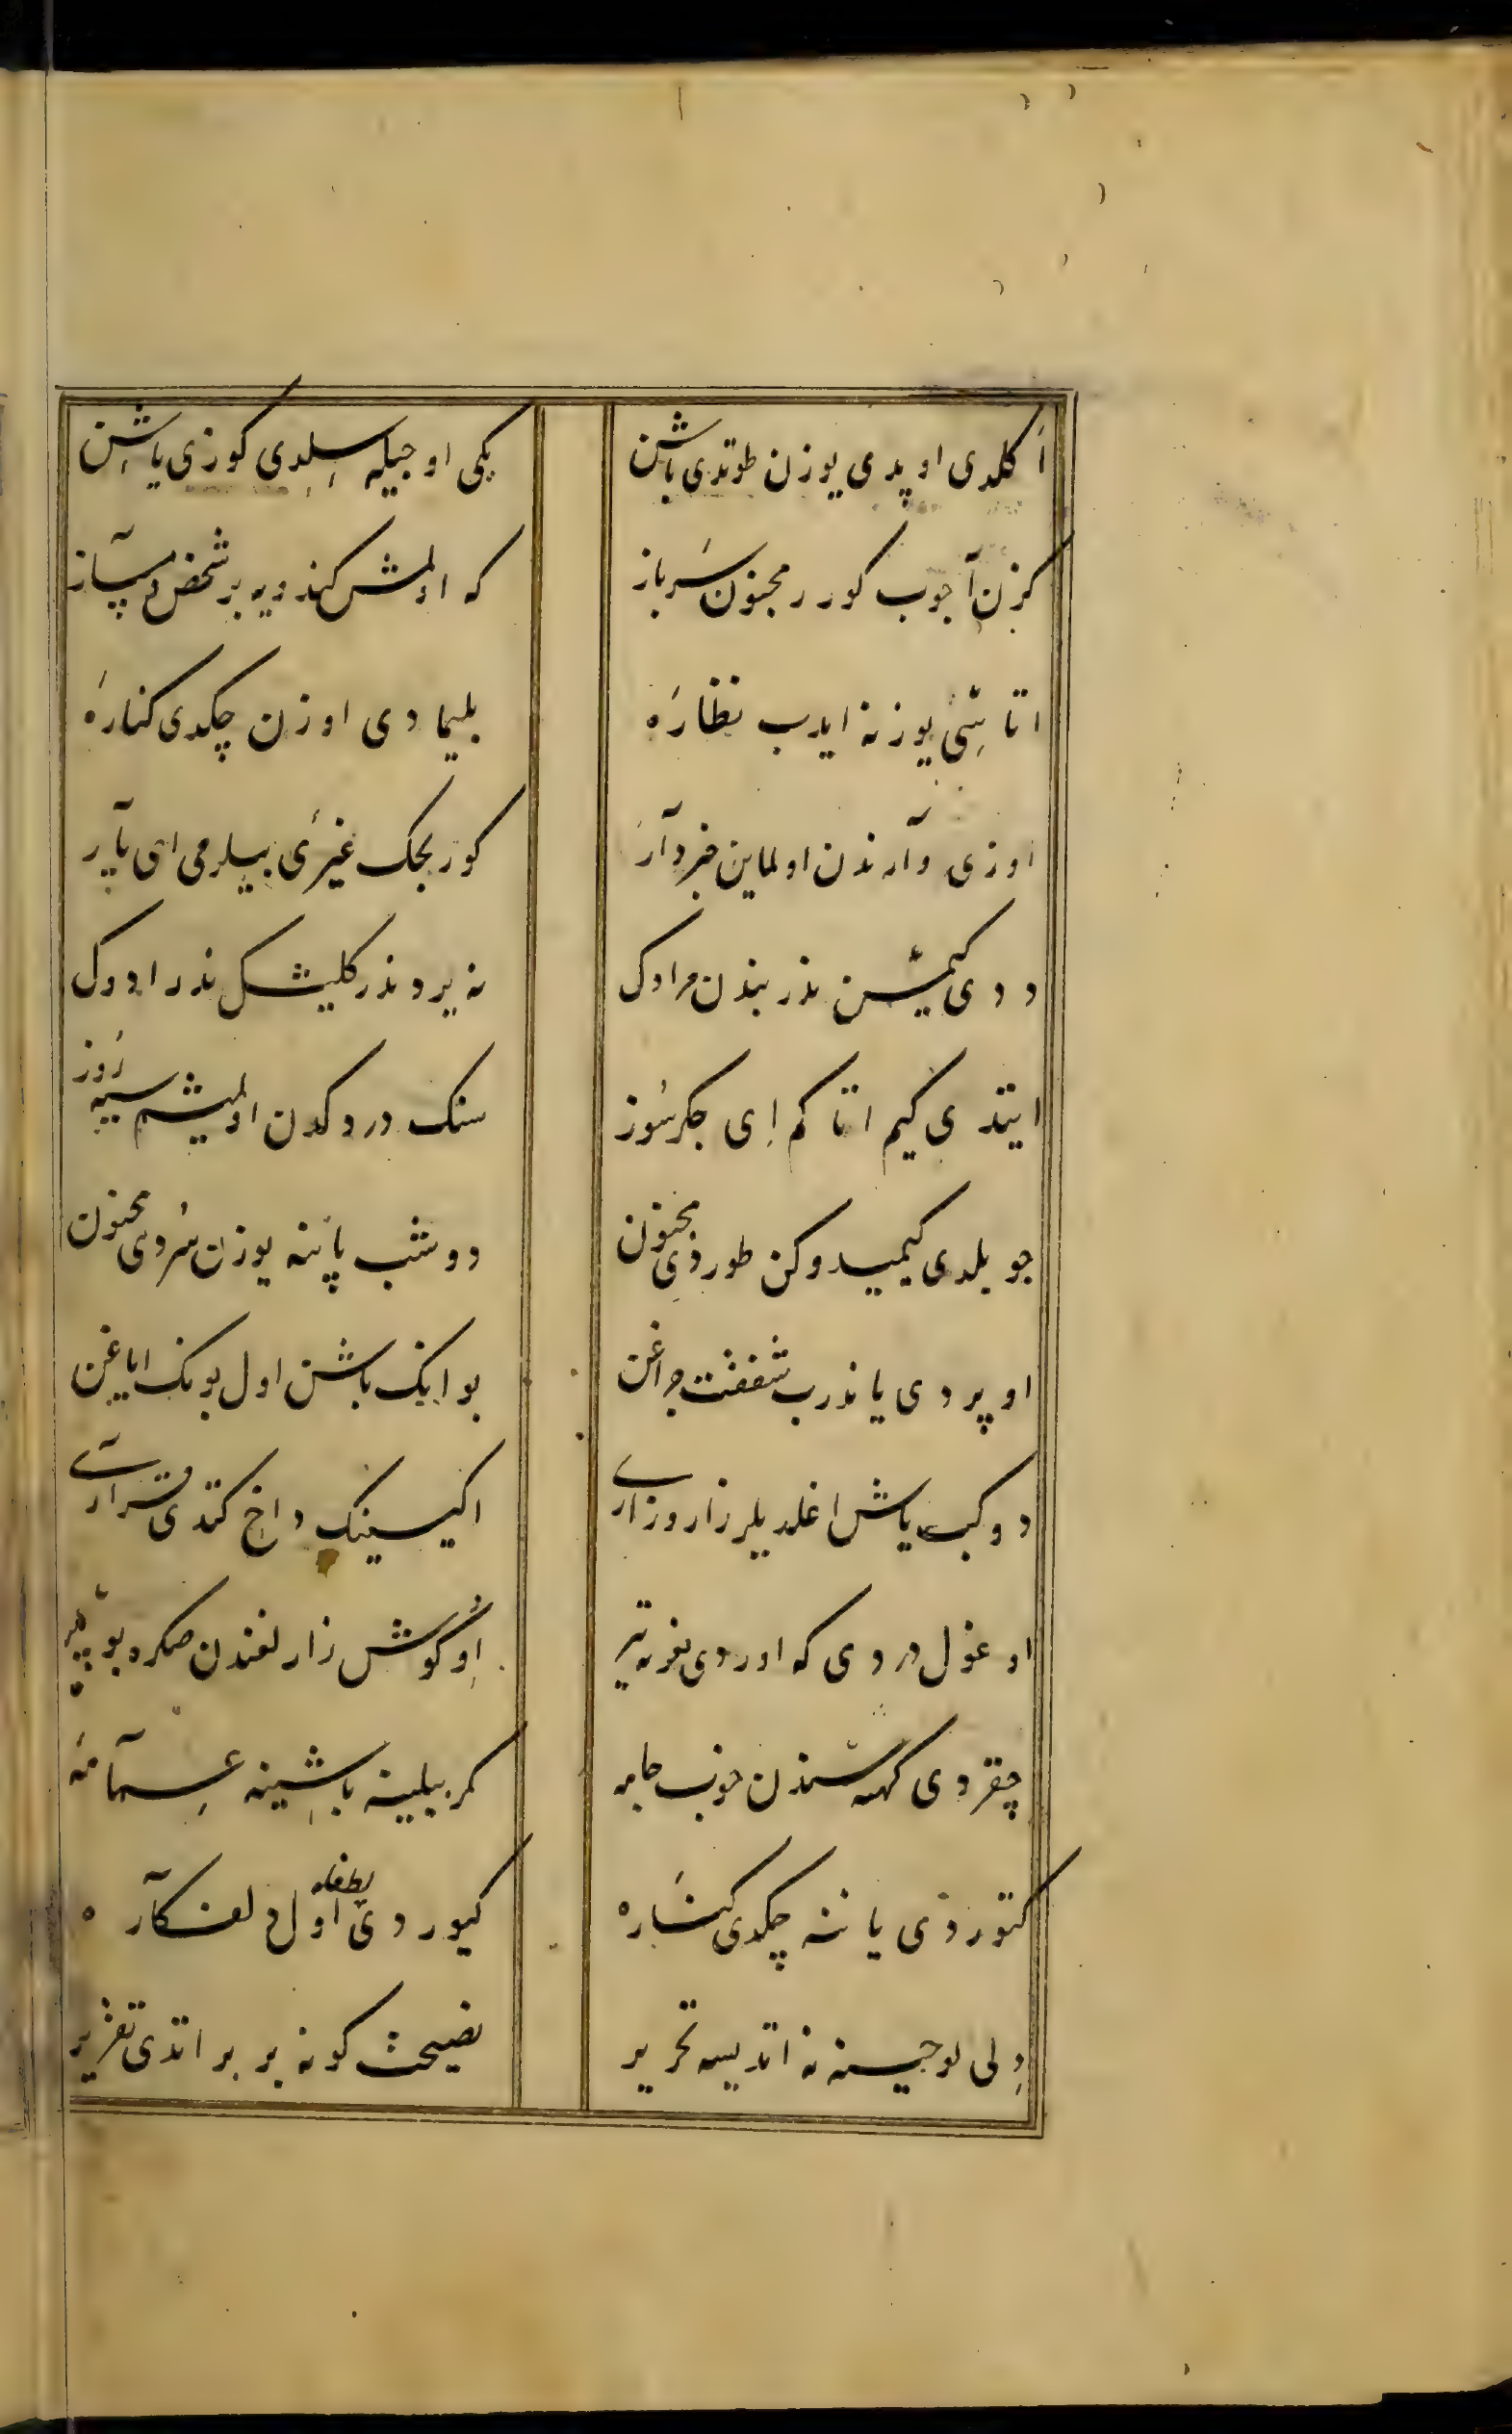 اكلدی اوپدی یوزن طوتدی باشن یكی اوجیله سلدی كوزی یاشن
كزن آجوب كورر مجنون سرباز كه اولمش كندویه بر شخص دمساز
اتاسی یوزنه ایدب نظاره بلیمادی اوزن چكدی كناره
اوزی وارندن اولماین خبردار كوریجك غیری بیلرمی ای یار
ددی كیمسن ندر بندن مرادك نه یردندر كلیشك ندر ادك
ایتدی كیم اتاكم ای جكرسوز سنك دردكدن اولمیشم سیه روز
جو بلدی كیمیدوكن طوردی مجنون دوشب پاینه یوزن سردی مجنون
اوپردی یاندرب شفقت چراغن بو انك باشن اول بونك ایاغن
دوكب یاش اغلدیلر زار و زاری اكیسینك داخ كتدی قراری
اوغول دردی كه اوردی بغرنه تیر اوكوش زارلغندن صكره بو پیر
چقردی كهنه سندن خوب جامه كمر بیلینه باشینه عمامه
كتوردی یاننه چكدی كناره كیوردی لطفله اول دلفكاره
دلی لوحیسنه نه اتدیسه تحریر نصیحت كونه بر بر اتدی تقریر